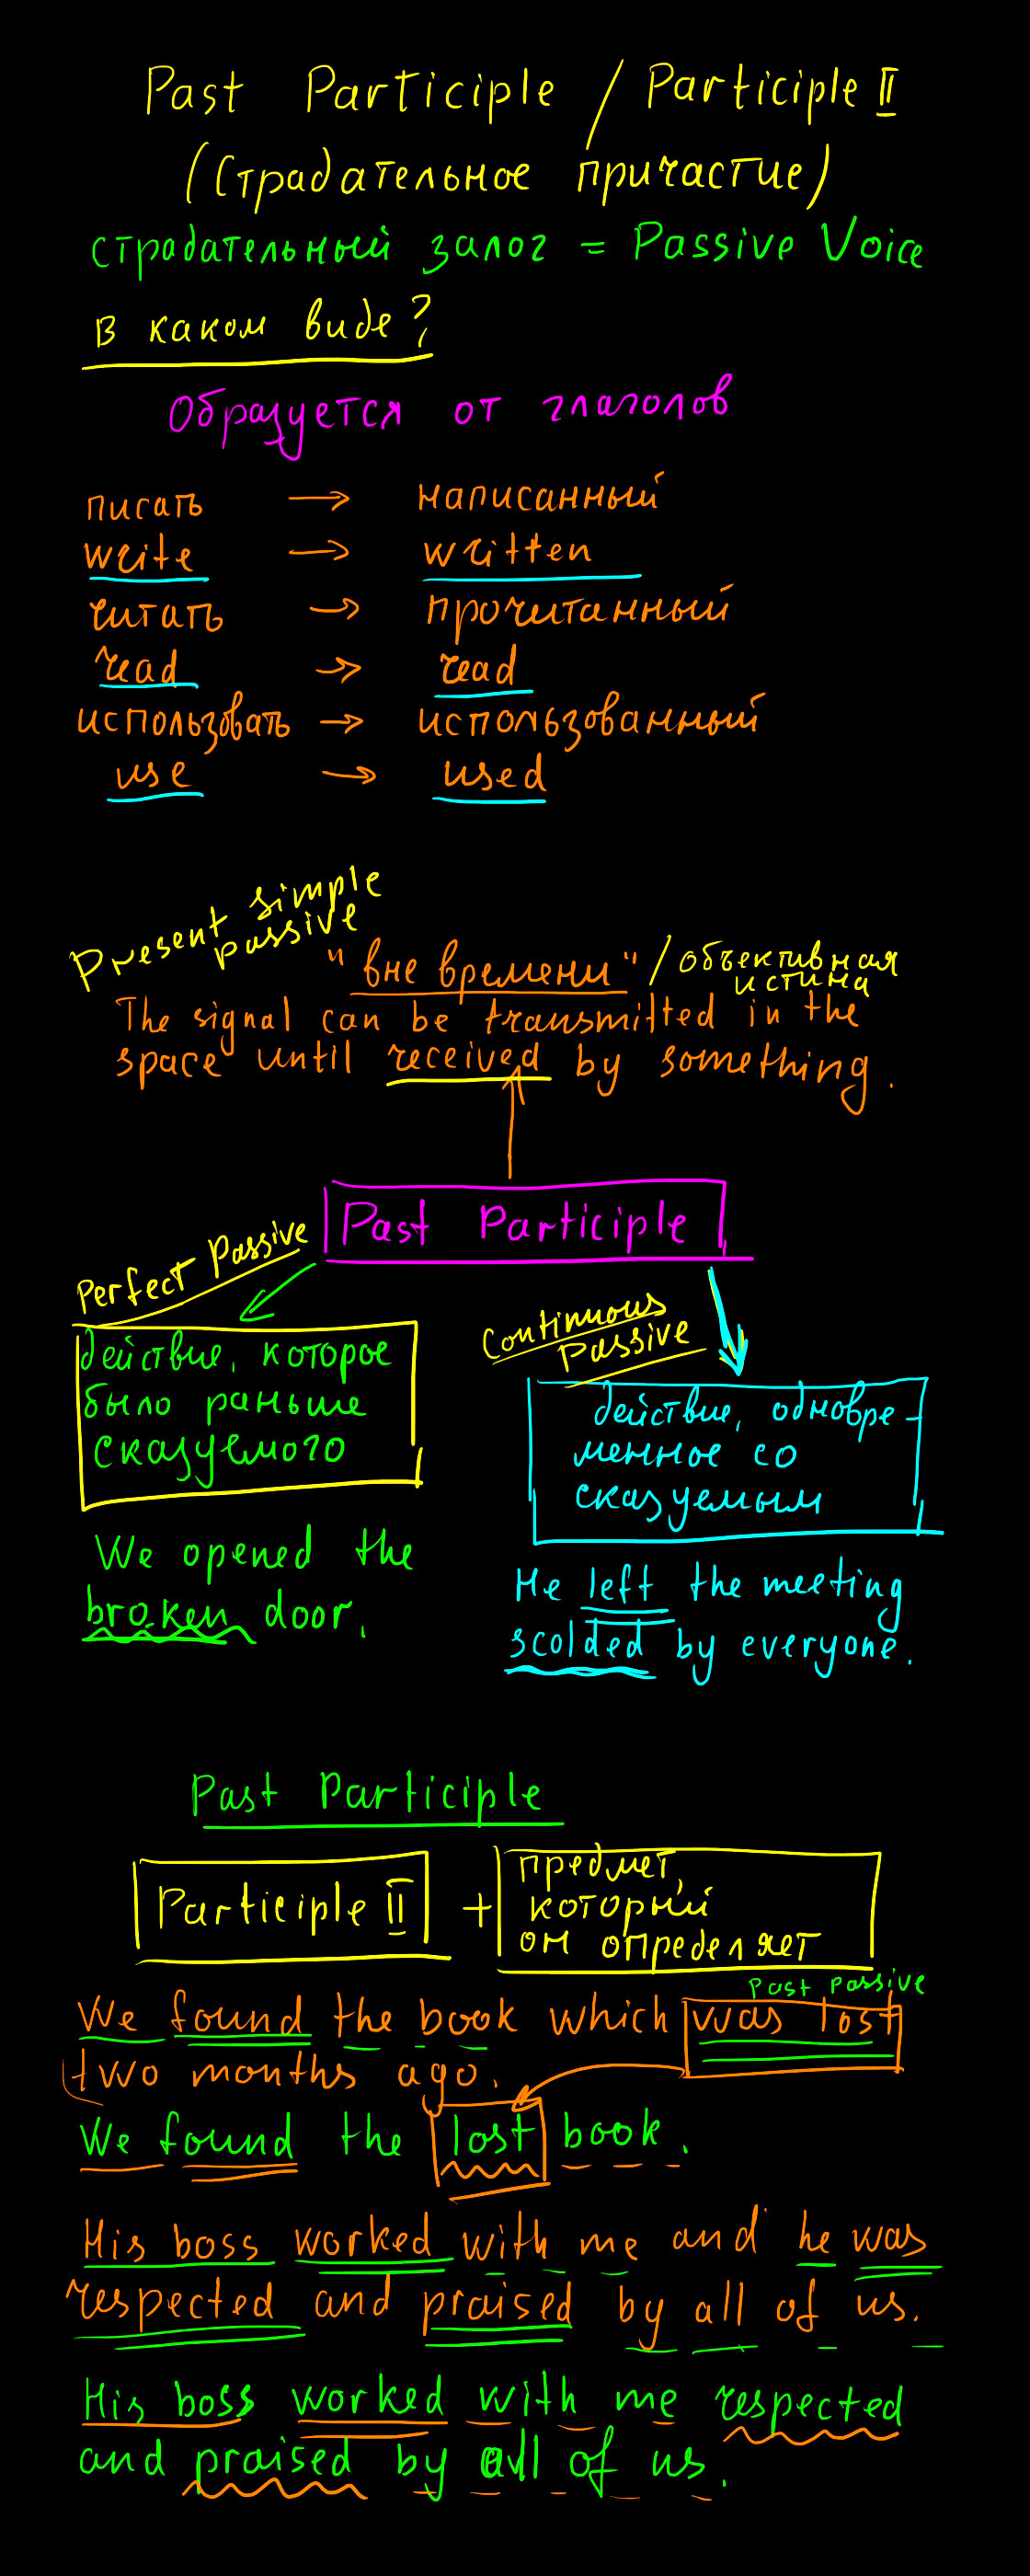 Past Participle / Participle II
(Страдательное причастие)
страдательный залог = Passive Voice
в каком виде?
Образуется от глаголов
писать → написанный
write → written
читать → прочитанный
read → read
использовать → использованный
use → used
Present simple
passive
"вне времени" / объективная
истина
The signal can be transmitted in the
space until received by something.
Past Participle
Perfect Passive
действие, которое
было раньше
сказуемого
We opened the
broken door.
Continuous
Passive
действие, одновре-
менное со
сказуемым
He left the meeting
scolded by everyone.
Past Participle
Participle II + предмет,
который
он определяет
Past Passive
We found the book which was lost
two months ago.
We found the lost book.
His boss worked with me and he was
respected and praised by all of us.
His boss worked with me respected
and praised by all of us.